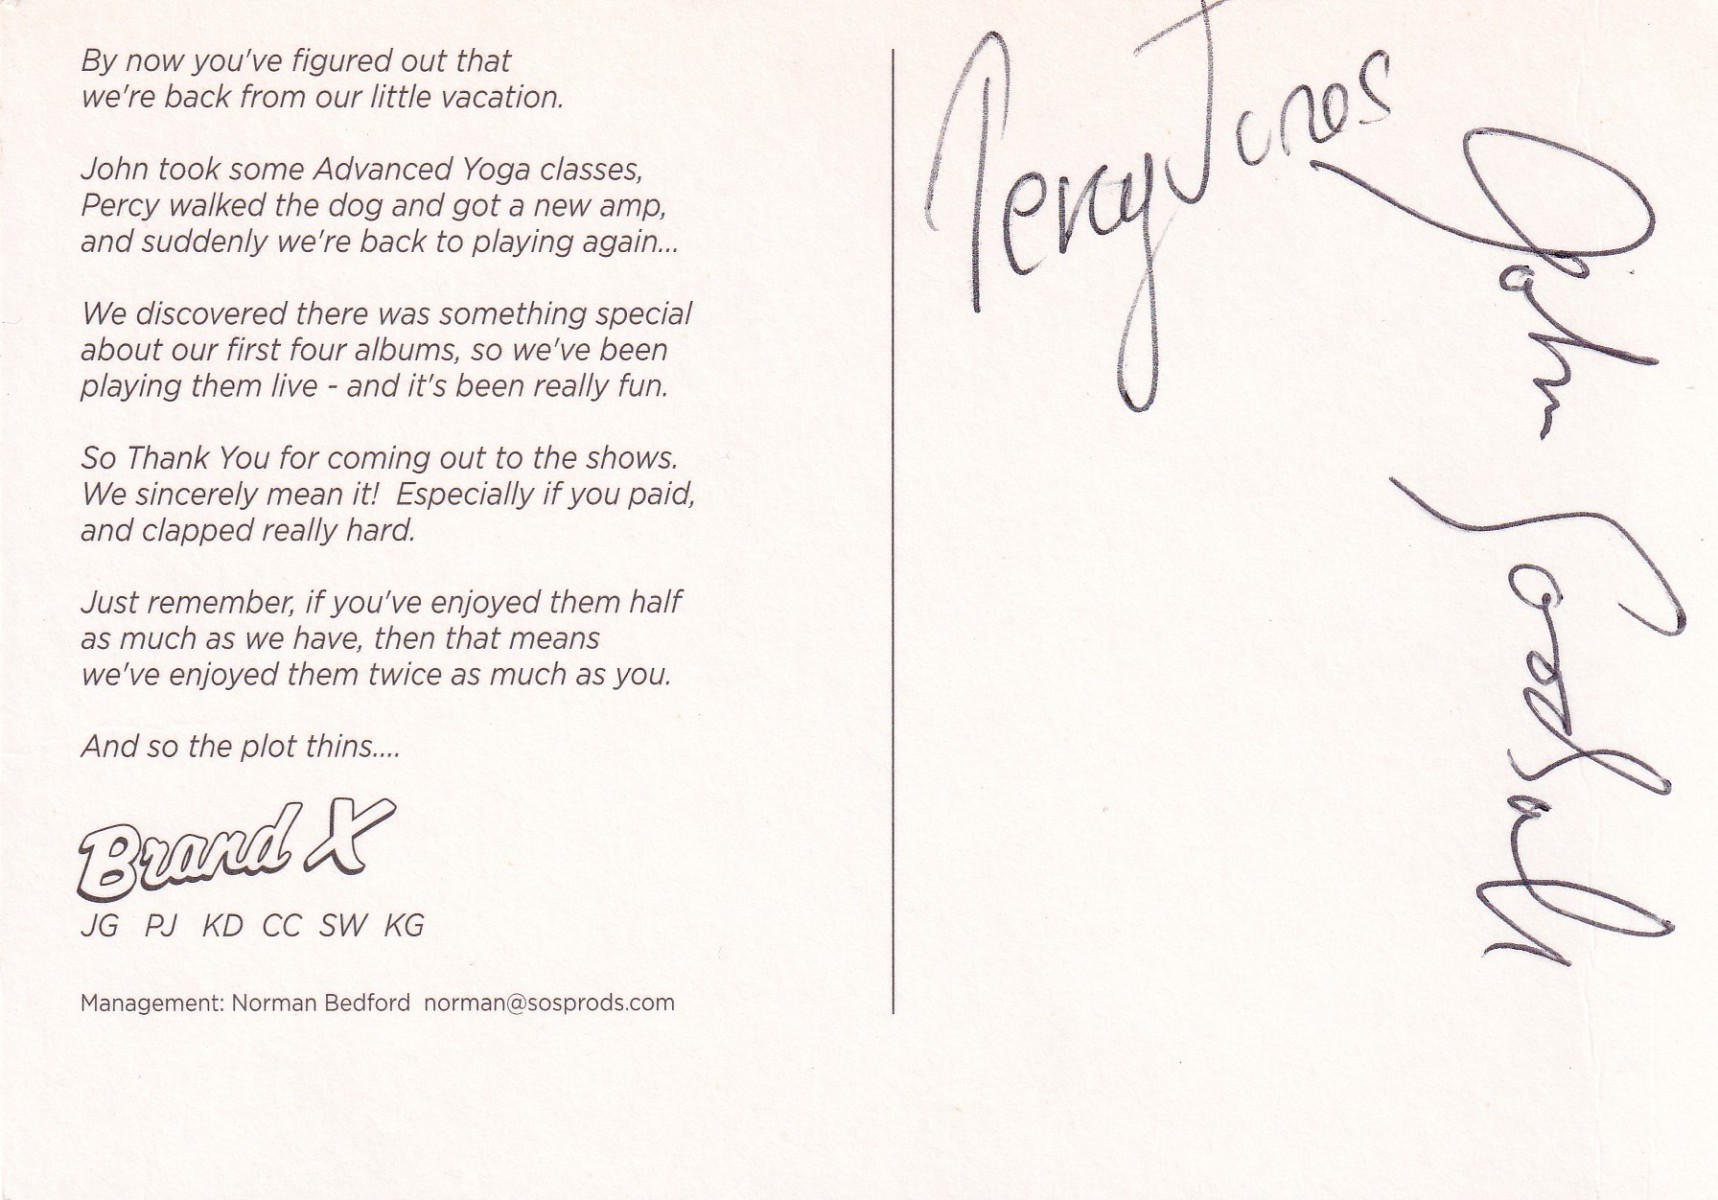 By now you've figured out that
we're back from our little vacation.
John took some Advanced Yoga classes,
Percy walked the dog and got a new amp,
and suddenly we're back to playing again...
We discovered there was something special
about our first four albums, so we've been
playing them live - and it's been really fun.
So Thank You for coming out to the shows.
We sincerely mean it!  Especially if you paid,
and clapped really hard.
Just remember, if you've enjoyed them half
as much as we have, then that means
we've enjoyed them twice as much as you.
And so the plot thins....
Brand X
JG PJ KD CC SW KG
Management: Norman Bedford norman@sosprods.com
Percy Jones
John Goodsall